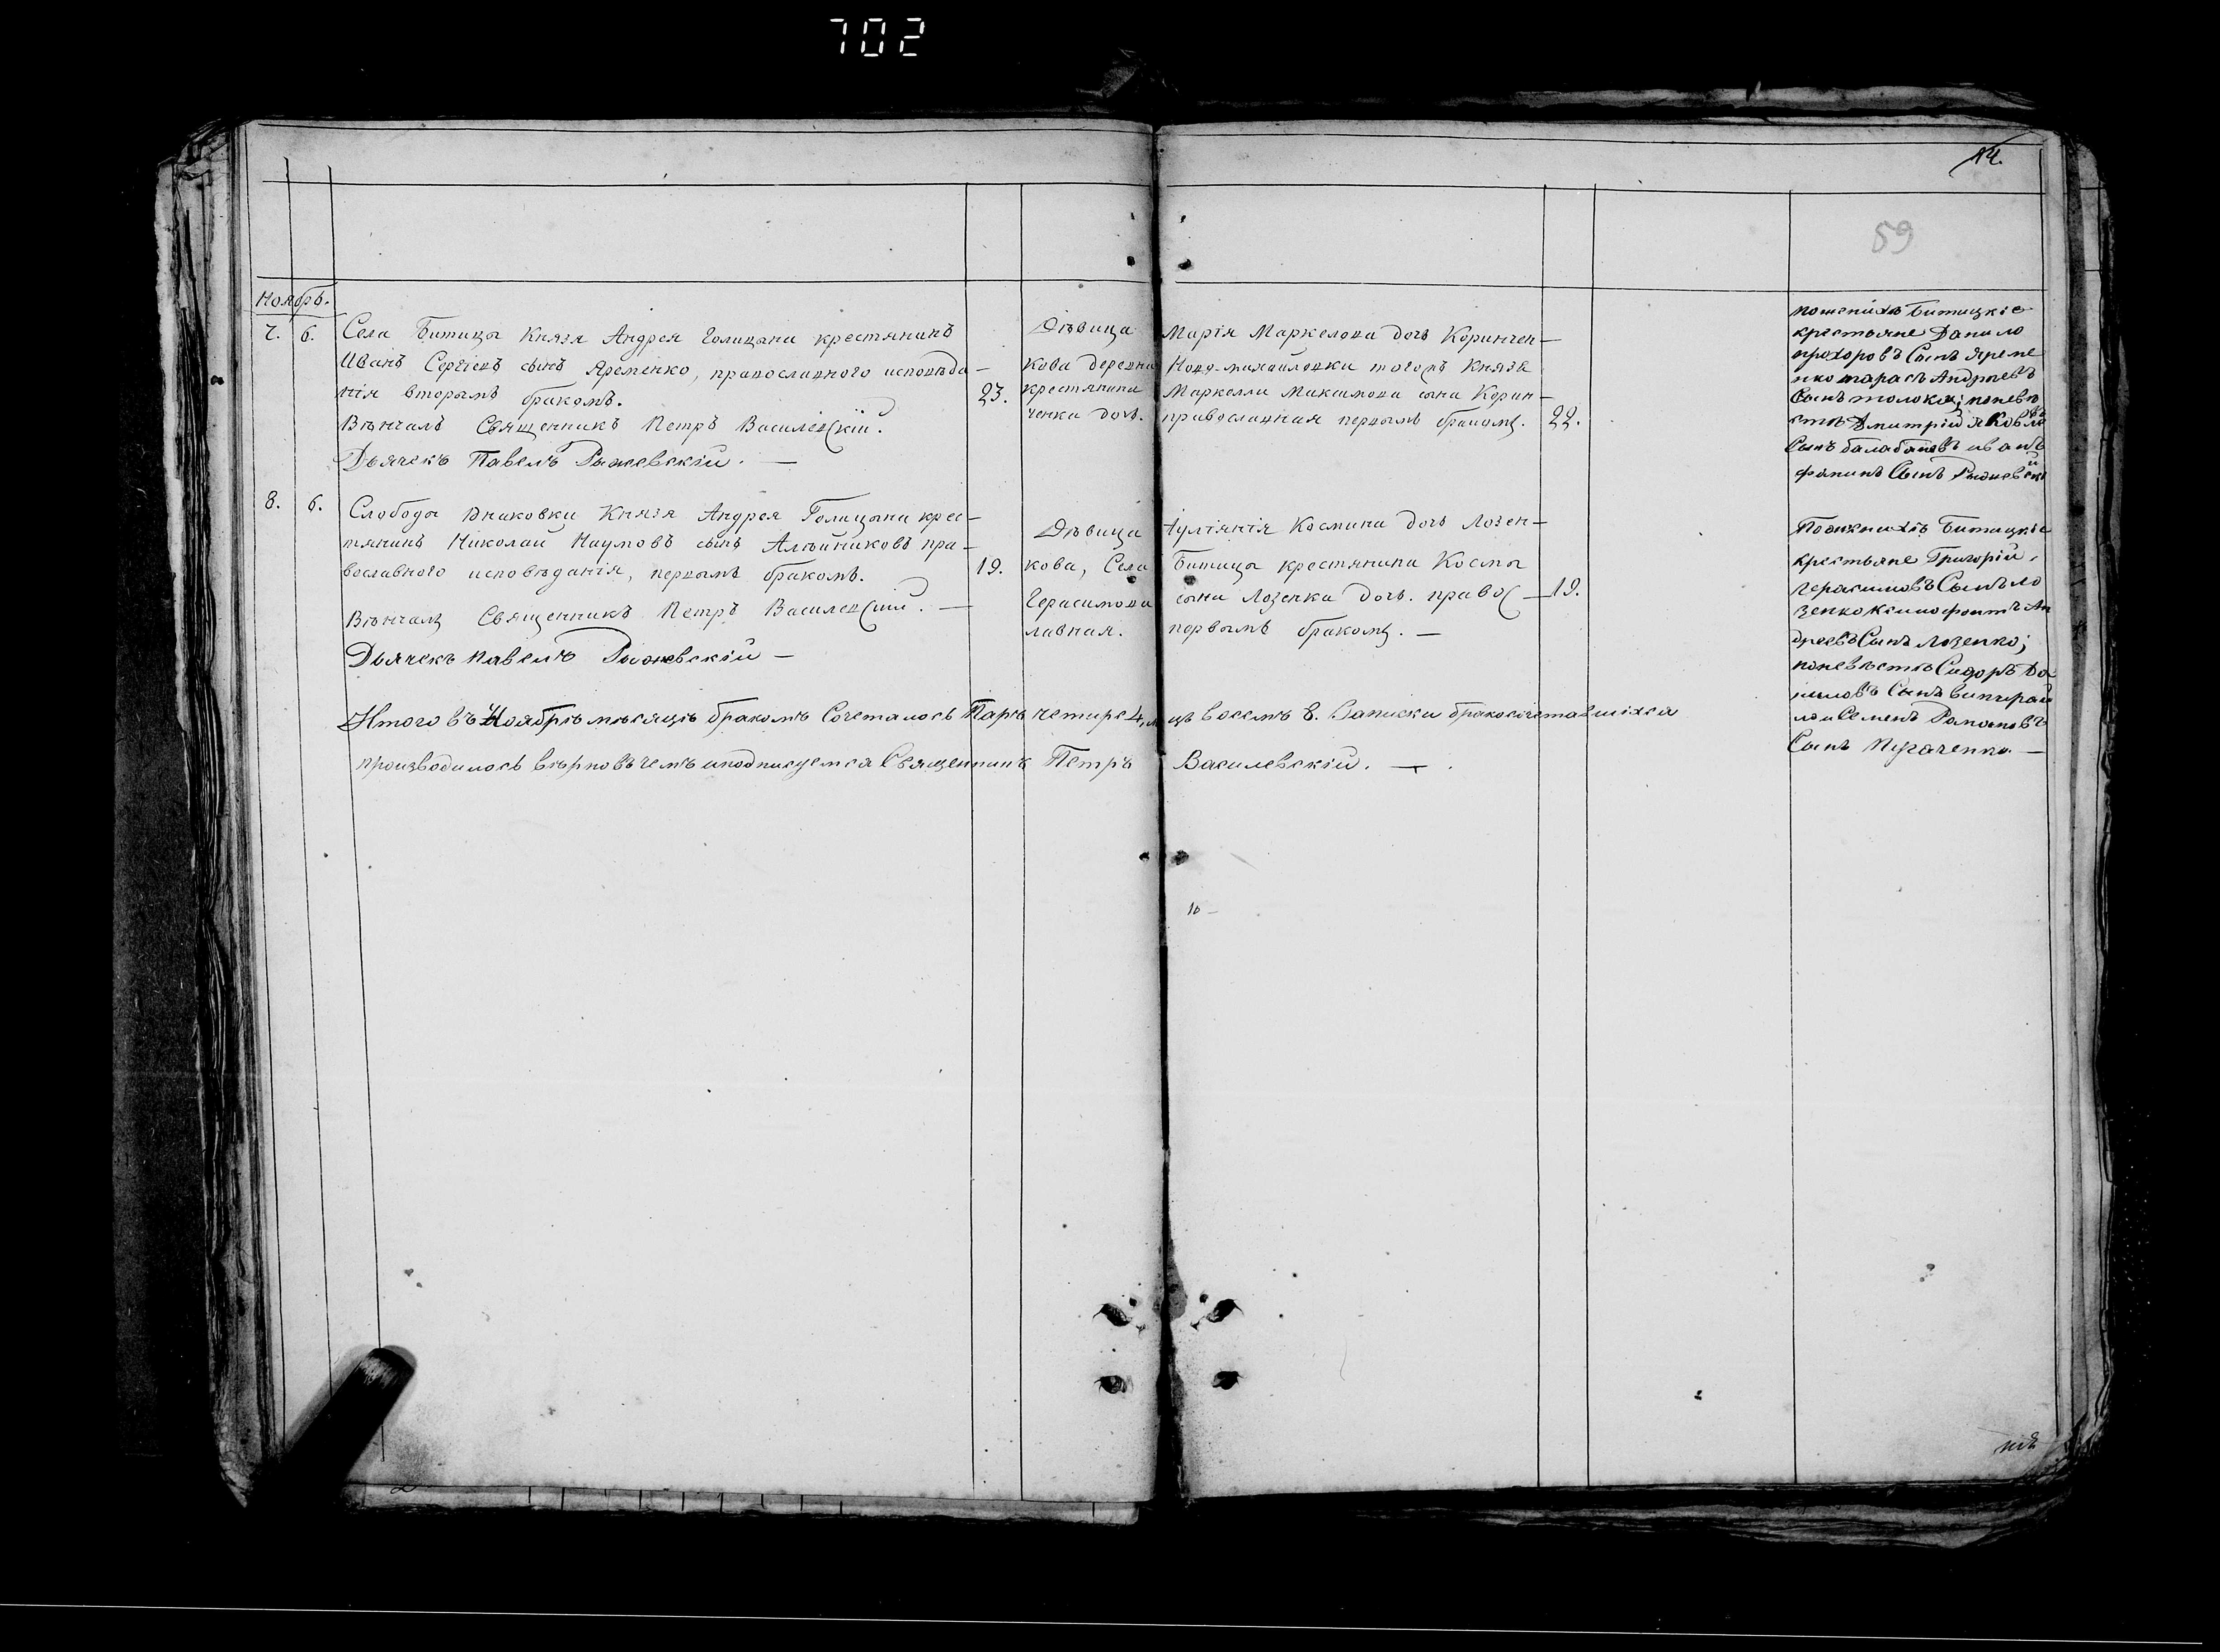 702
14.
59
Ноябрь.
7. 6.
Села Битицы Князя Андрея Голицына крестянинъ
Иванъ Сергіевъ сынъ Яременко, православного исповѣда-
нія вторымъ бракомъ.
23.
Вѣнчалъ Священникъ Петръ Василевскій.
Дьячекъ Павелъ Рыжевскій. —
Дѣвица Марія Маркелова дочь Коринчен-
кова деревни Ново-михайловки тогожъ Князя
крестянина Маркелла Максимова сына Корин-
ченка дочь. православная первымъ бракомъ.
22.
Поженихѣ Битицкіе
крестьяне Данило
прохоровъ Сынъ Яреме
нко тарасъ Андреевъ
Сынъ толока; поневѣ
стѣ Дмитрій Яковлевъ
Сынъ балабановъ иванъ
Сынъ Рыжевскій
8. 6.
Слободы Князя Андрея Голицына крес-
тянинъ Николай Наумовъ сынъ Алѣйниковъ пра-
вославного исповѣданія, первымъ бракомъ.
19.
Вѣнчалъ Священникъ Петръ Василевскій. —
Дьячекъ павелъ Рыжевскій —
Дѣвица Іуліянія Космина дочь Лозен-
кова, Села Битицы крестянина Космы
Герасимова сына Лозенка дочь. правос-
лавная. первымъ бракомъ. —
19.
Поженихѣ Битицкіе
крестьяне Григорій
герасимовъ Сынъ ло
зенко Ксинофонтъ Ан
дреевъ Сынъ лозенко;
поневѣстѣ Сидоръ Да
ниловъ Сынъ
и Семенъ Романовъ
Сынъ Пугаченко. —
Итого въ Ноябрѣ мѣсяцѣ бракомъ Сочеталось Паръ четире 4, лицъ восемъ 8. Записки бракосочетавшихся
производилось вѣрно въ чемъ иподписуемся Священникъ Петръ Василевскій. —